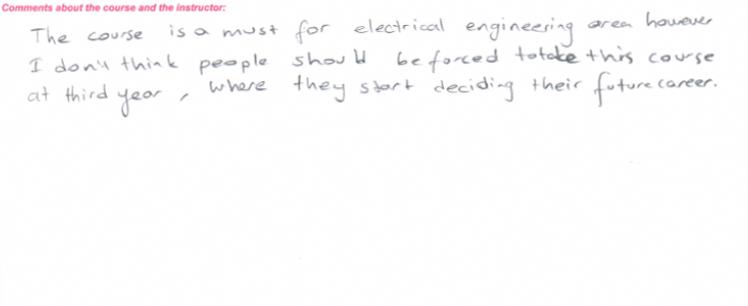 Comments about the course and the instructor:
The course is a must for electrical engineering area however
I don't think people should be forced totake this course
at third year, where they start deciding their future career.